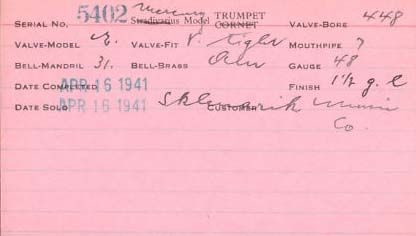 5402 Mercury TRUMPET 448
SERIAL NO. Stradivarius Model CORNET VALVE-BORE
VALVE-MODEL VALVE-FIT V. tight MOUTHPIPE 7
BELL-MANDRIL 31. BELL-BRASS GAUGE 48
DATE COMPLETED APR 16 1941 FINISH 1½ g. l
DATE SOLD APR 16 1941 CUSTOMER Music
Co.